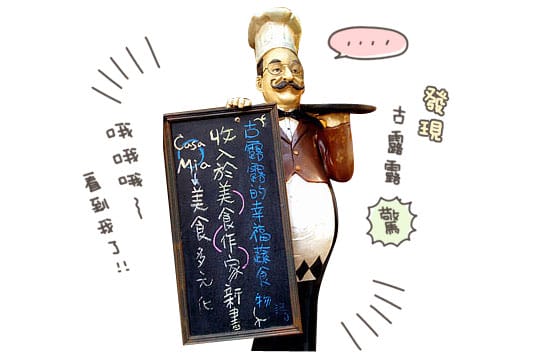 哦哦哦~
看到我了!!
....
發現
古露露
驚
古露露的幸福蔬食物
收入於美食作家新書
Casa
Mia
美食多元化